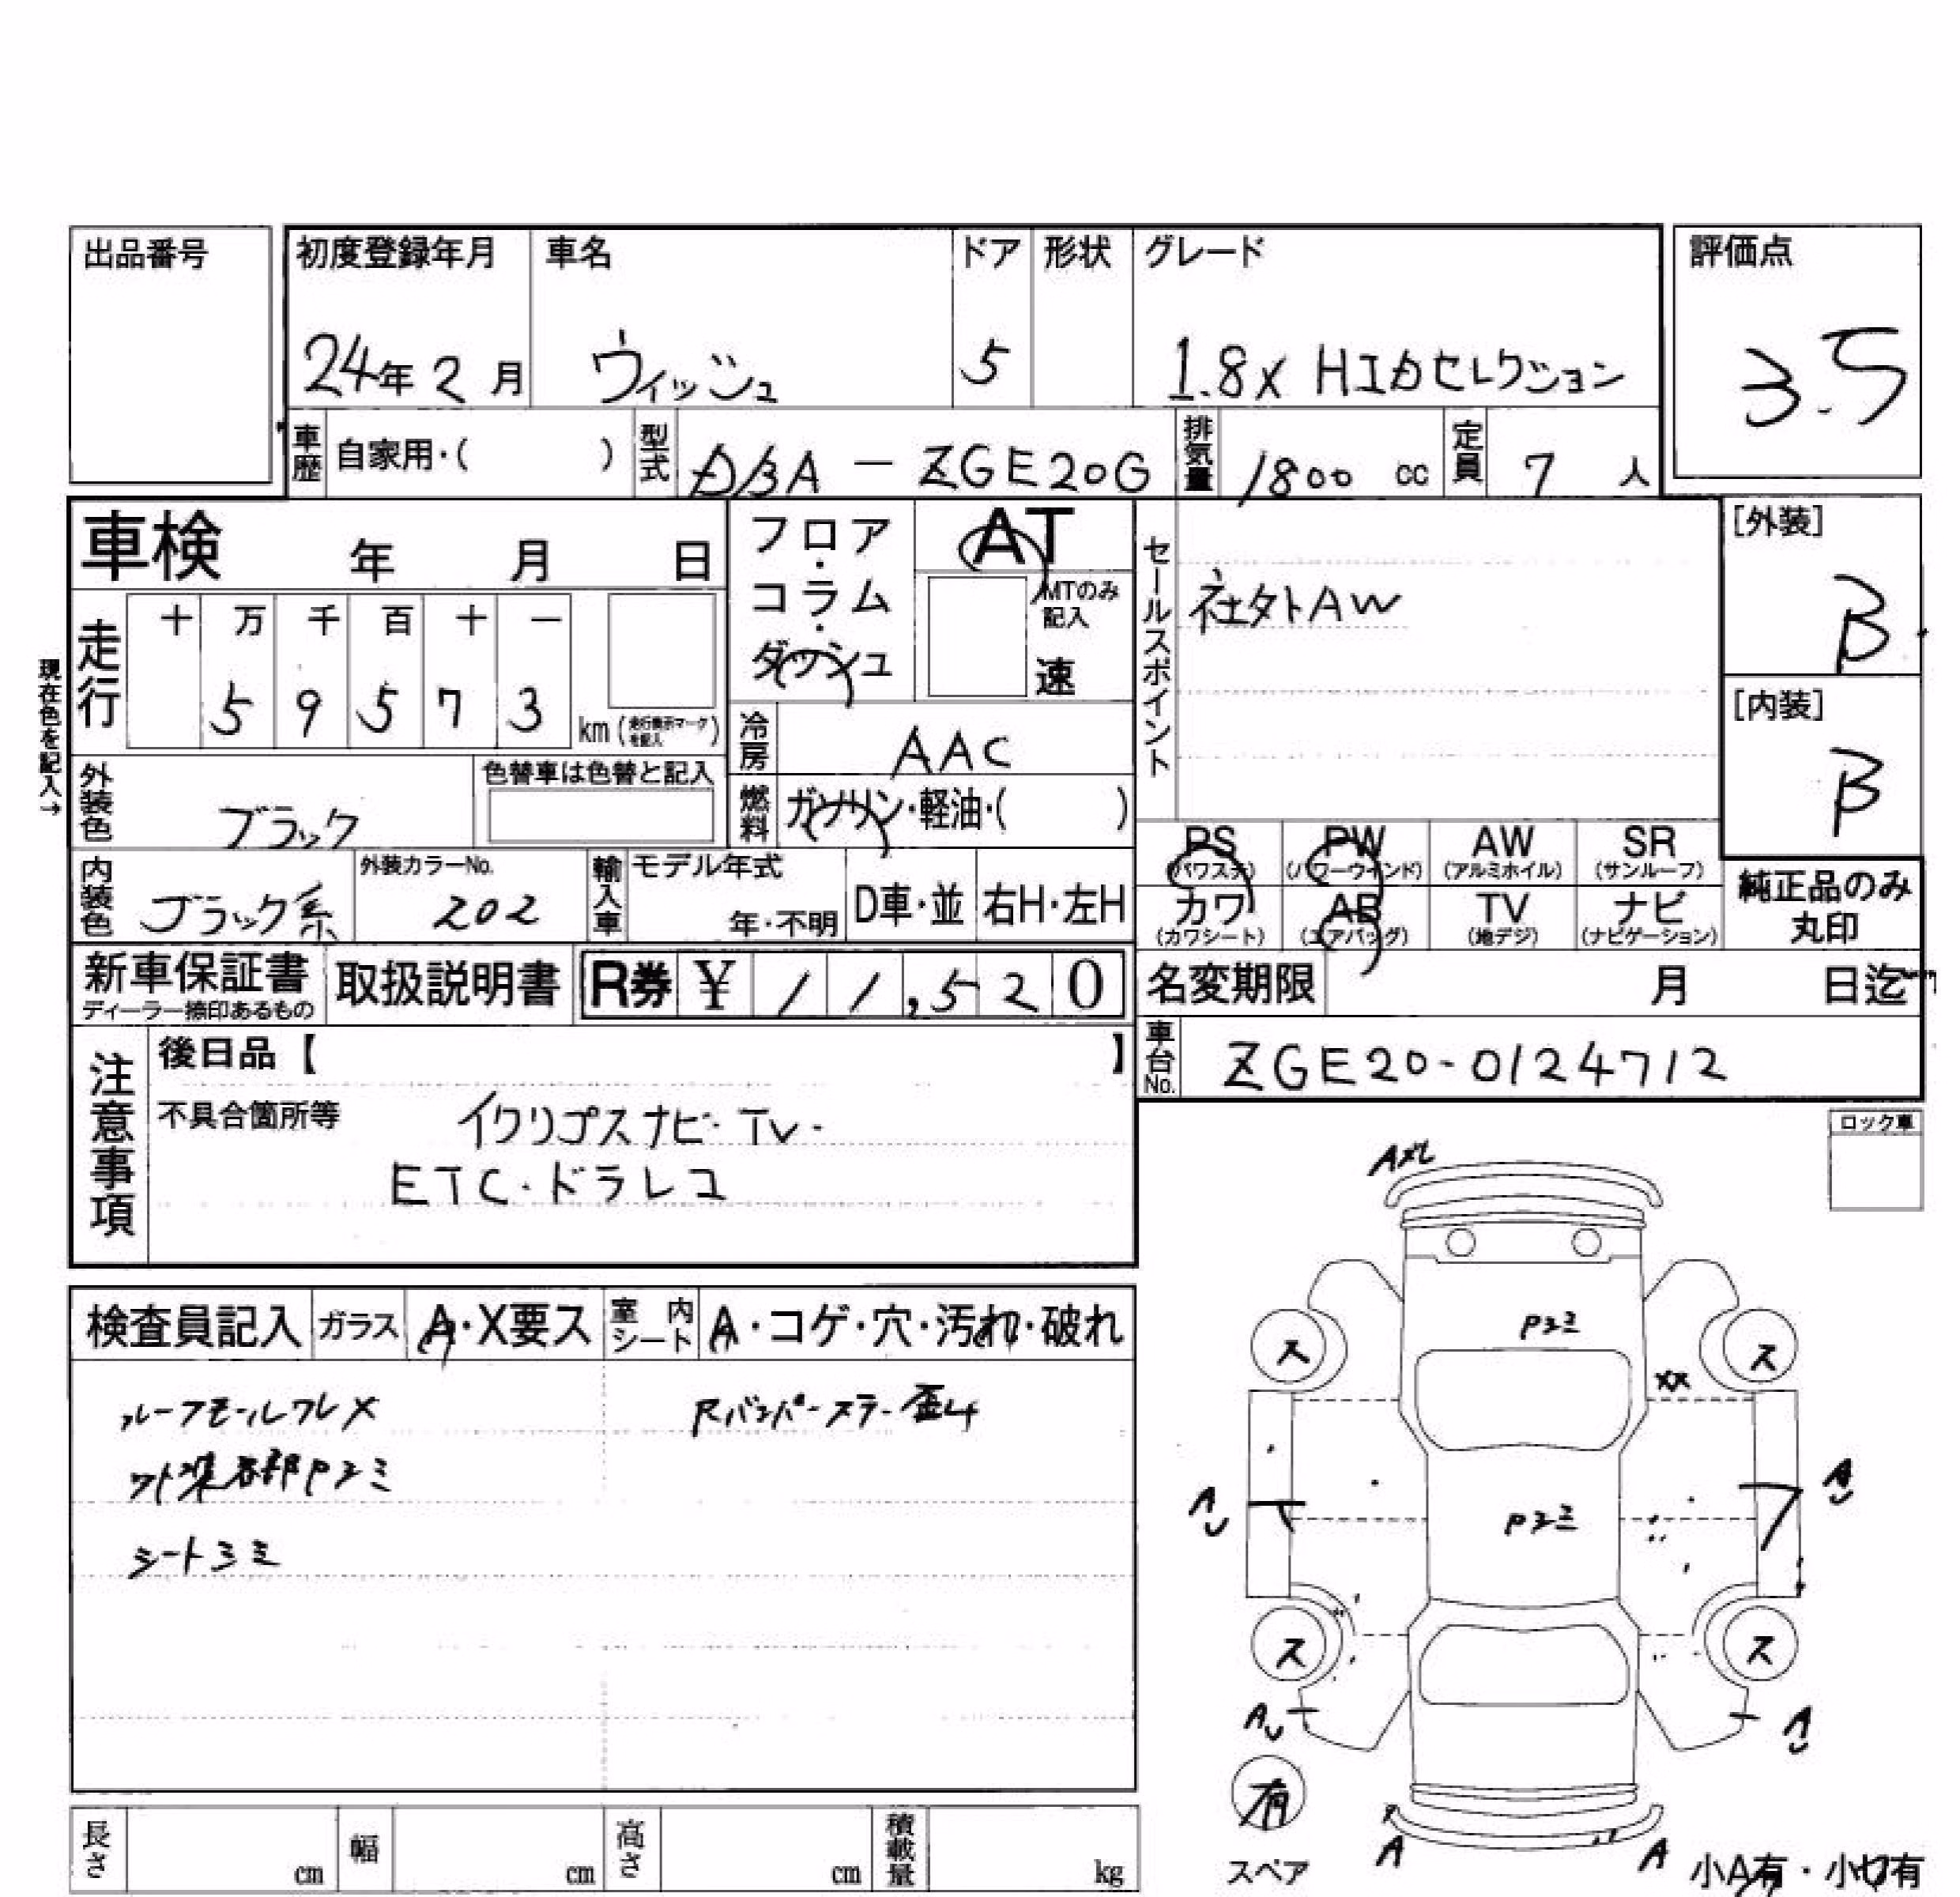 出品番号
初度登録年月 車名 ドア 形状 グレード 評価点
24年 2月 ウィッシュ 5 1.8X HIDセレクション 3.5
車歴 自家用・( ) 型式 DBA - ZGE20G 排気量 1800 cc 定員 7 人
車検 年 月 日
フロア・コラム・ダッシュ
AT
MTのみ記入
速
セールスポイント
社外AW
[外装]
B
[内装]
B
走行 十 万 千 百 十 一
5 9 5 7 3 km (走行機形マークを記入)
現在色を記入→
冷房 AAC
外装色 ブラック 色替車は色替と記入
燃料 ガソリン・軽油・( )
PS PW AW SR
(パワステ) (パワーウインド) (アルミホイル) (サンルーフ)
カワ AB TV ナビ
(カワシート) (エアバッグ) (地デジ) (ナビゲーション)
純正品のみ
丸印
内装色 ブラック系 外装カラーNo. 202 輸入車 モデル年式 年・不明 D車・並 右H・左H
新車保証書 取扱説明書 R券 ¥ 11,520
ディーラー捺印あるもの
名変期限 月 日迄
車台No. ZGE20-0124712
注意事項
後日品【 】
不具合箇所等 イクリプスナビ・TV・
ETC・ドラレコ
ロック車
検査員記入 ガラス A・X要ス 室内シート A・コゲ・穴・汚れ・破れ
ルーフモールワレX Rバンパーステー歪4
シートヨミ
A
ス ス
XX
A A
ス ス
A A
有
スペア
A A
小A有・小U有
長さ cm 幅 cm 高さ cm 積載量 kg